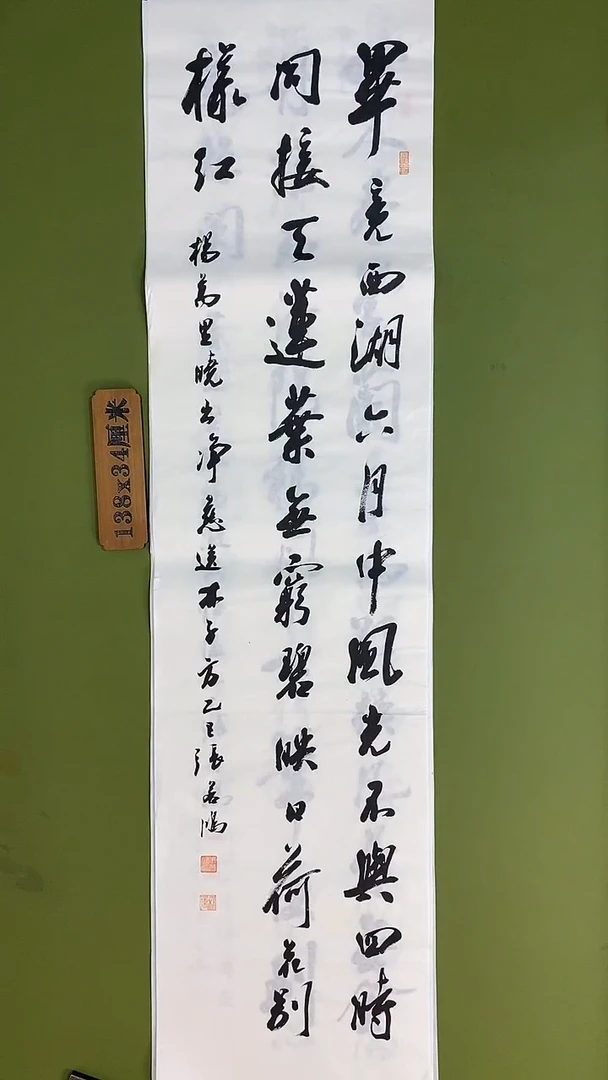 畢竟西湖六月中風光不與四時
同接天蓮葉無窮碧映日荷花別
樣紅 楊萬里曉出净慈送林子方乙巳張
138x34厘米